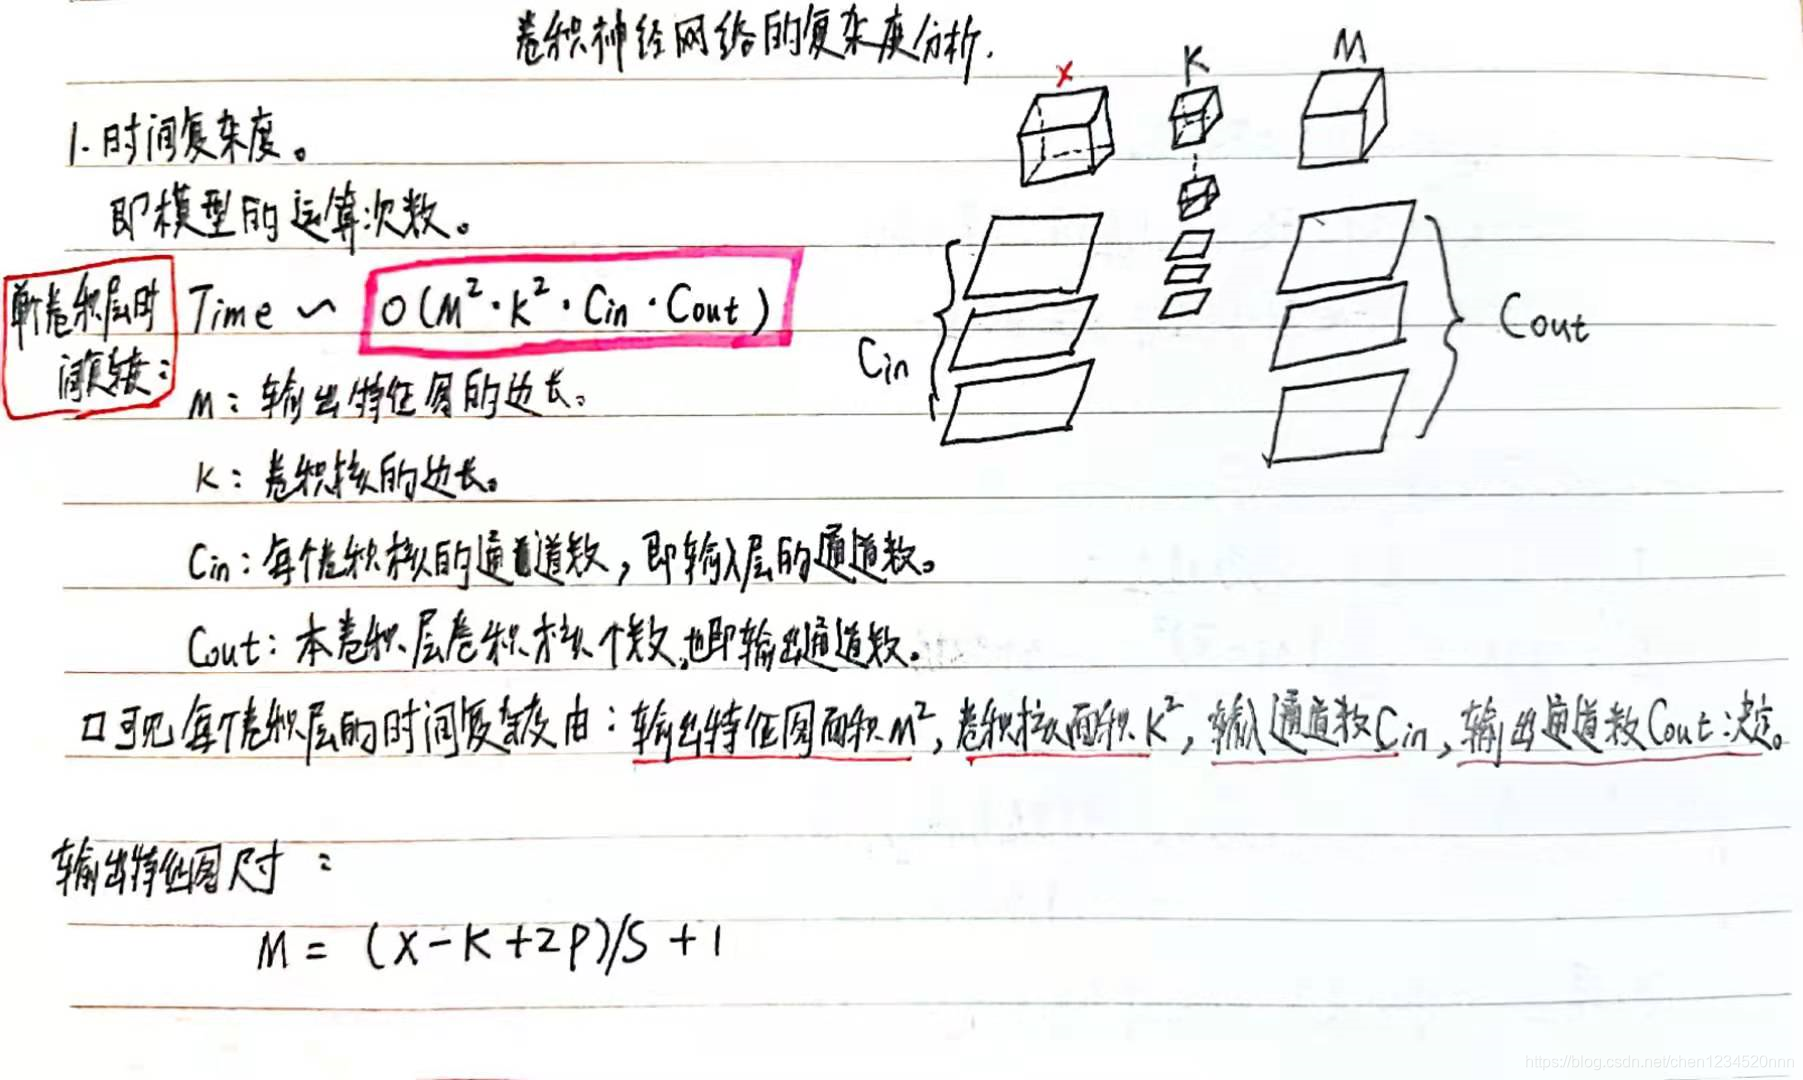 卷积神经网络的复杂度分析.
1. 时间复杂度。
即模型的运算次数。
单个卷积层时
间复杂度:
Time ~ O(M²·K²·Cin·Cout)
M: 输出特征图的边长。
K: 卷积核的边长。
Cin: 每个卷积核的通道数, 即输入层的通道数。
Cout: 本卷积层卷积核个数, 也即输出通道数。
口可见每个卷积层的时间复杂度由: 输出特征图面积M², 卷积核面积K², 输入通道数Cin, 输出通道数Cout决定。
输出特征图尺寸:
M = (X-K+2P)/S+1
X
K
M
Cin
Cout
https://blog.csdn.net/chen1234520nnn